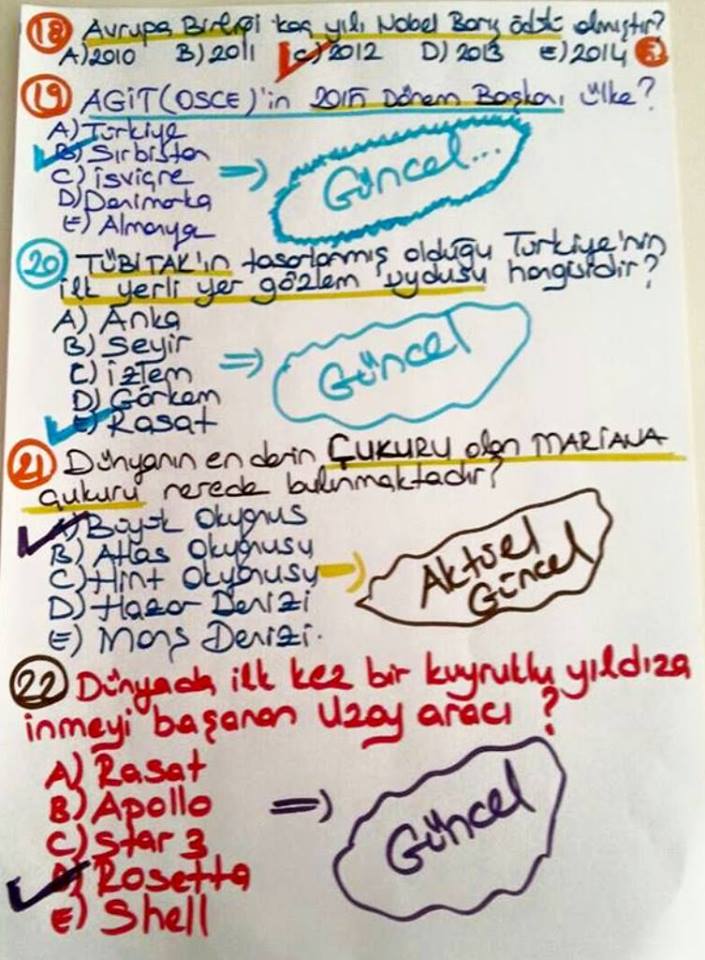 18 Avrupa Birliği kaç yılı Nobel Barış ödülü almıştır?
A) 2010 B) 2011 C) 2012 D) 2013 E) 2014
19 AGİT(OSCE)'in 2015 Dönem Başkanı ülke?
A) Türkiye
B) Sırbistan
C) isviçre
D) Danimarka
E) Almanya
Güncel...
20 TÜBİTAK'ın tasarlanmış olduğu Türkiye'nin
ilk yerli yer gözlem uydusu hangisidir?
A) Anka
B) Seyir
C) izlem
D) Görkem
E) Rasat
Güncel
21 Dünyanın en derin ÇUKURU olan MARİANA
çukuru nerede bulunmaktadır?
A) Büyük Okyanus
B) Atlas Okyanusu
C) Hint Okyanusu
D) Hazar Denizi
E) Manş Denizi.
Aktüel
Güncel
22 Dünyada ilk kez bir kuyruklu yıldıza
inmeyi başaran Uzay aracı ?
A) Rasat
B) Apollo
C) Star 3
D) Rosetta
E) Shell
Güncel